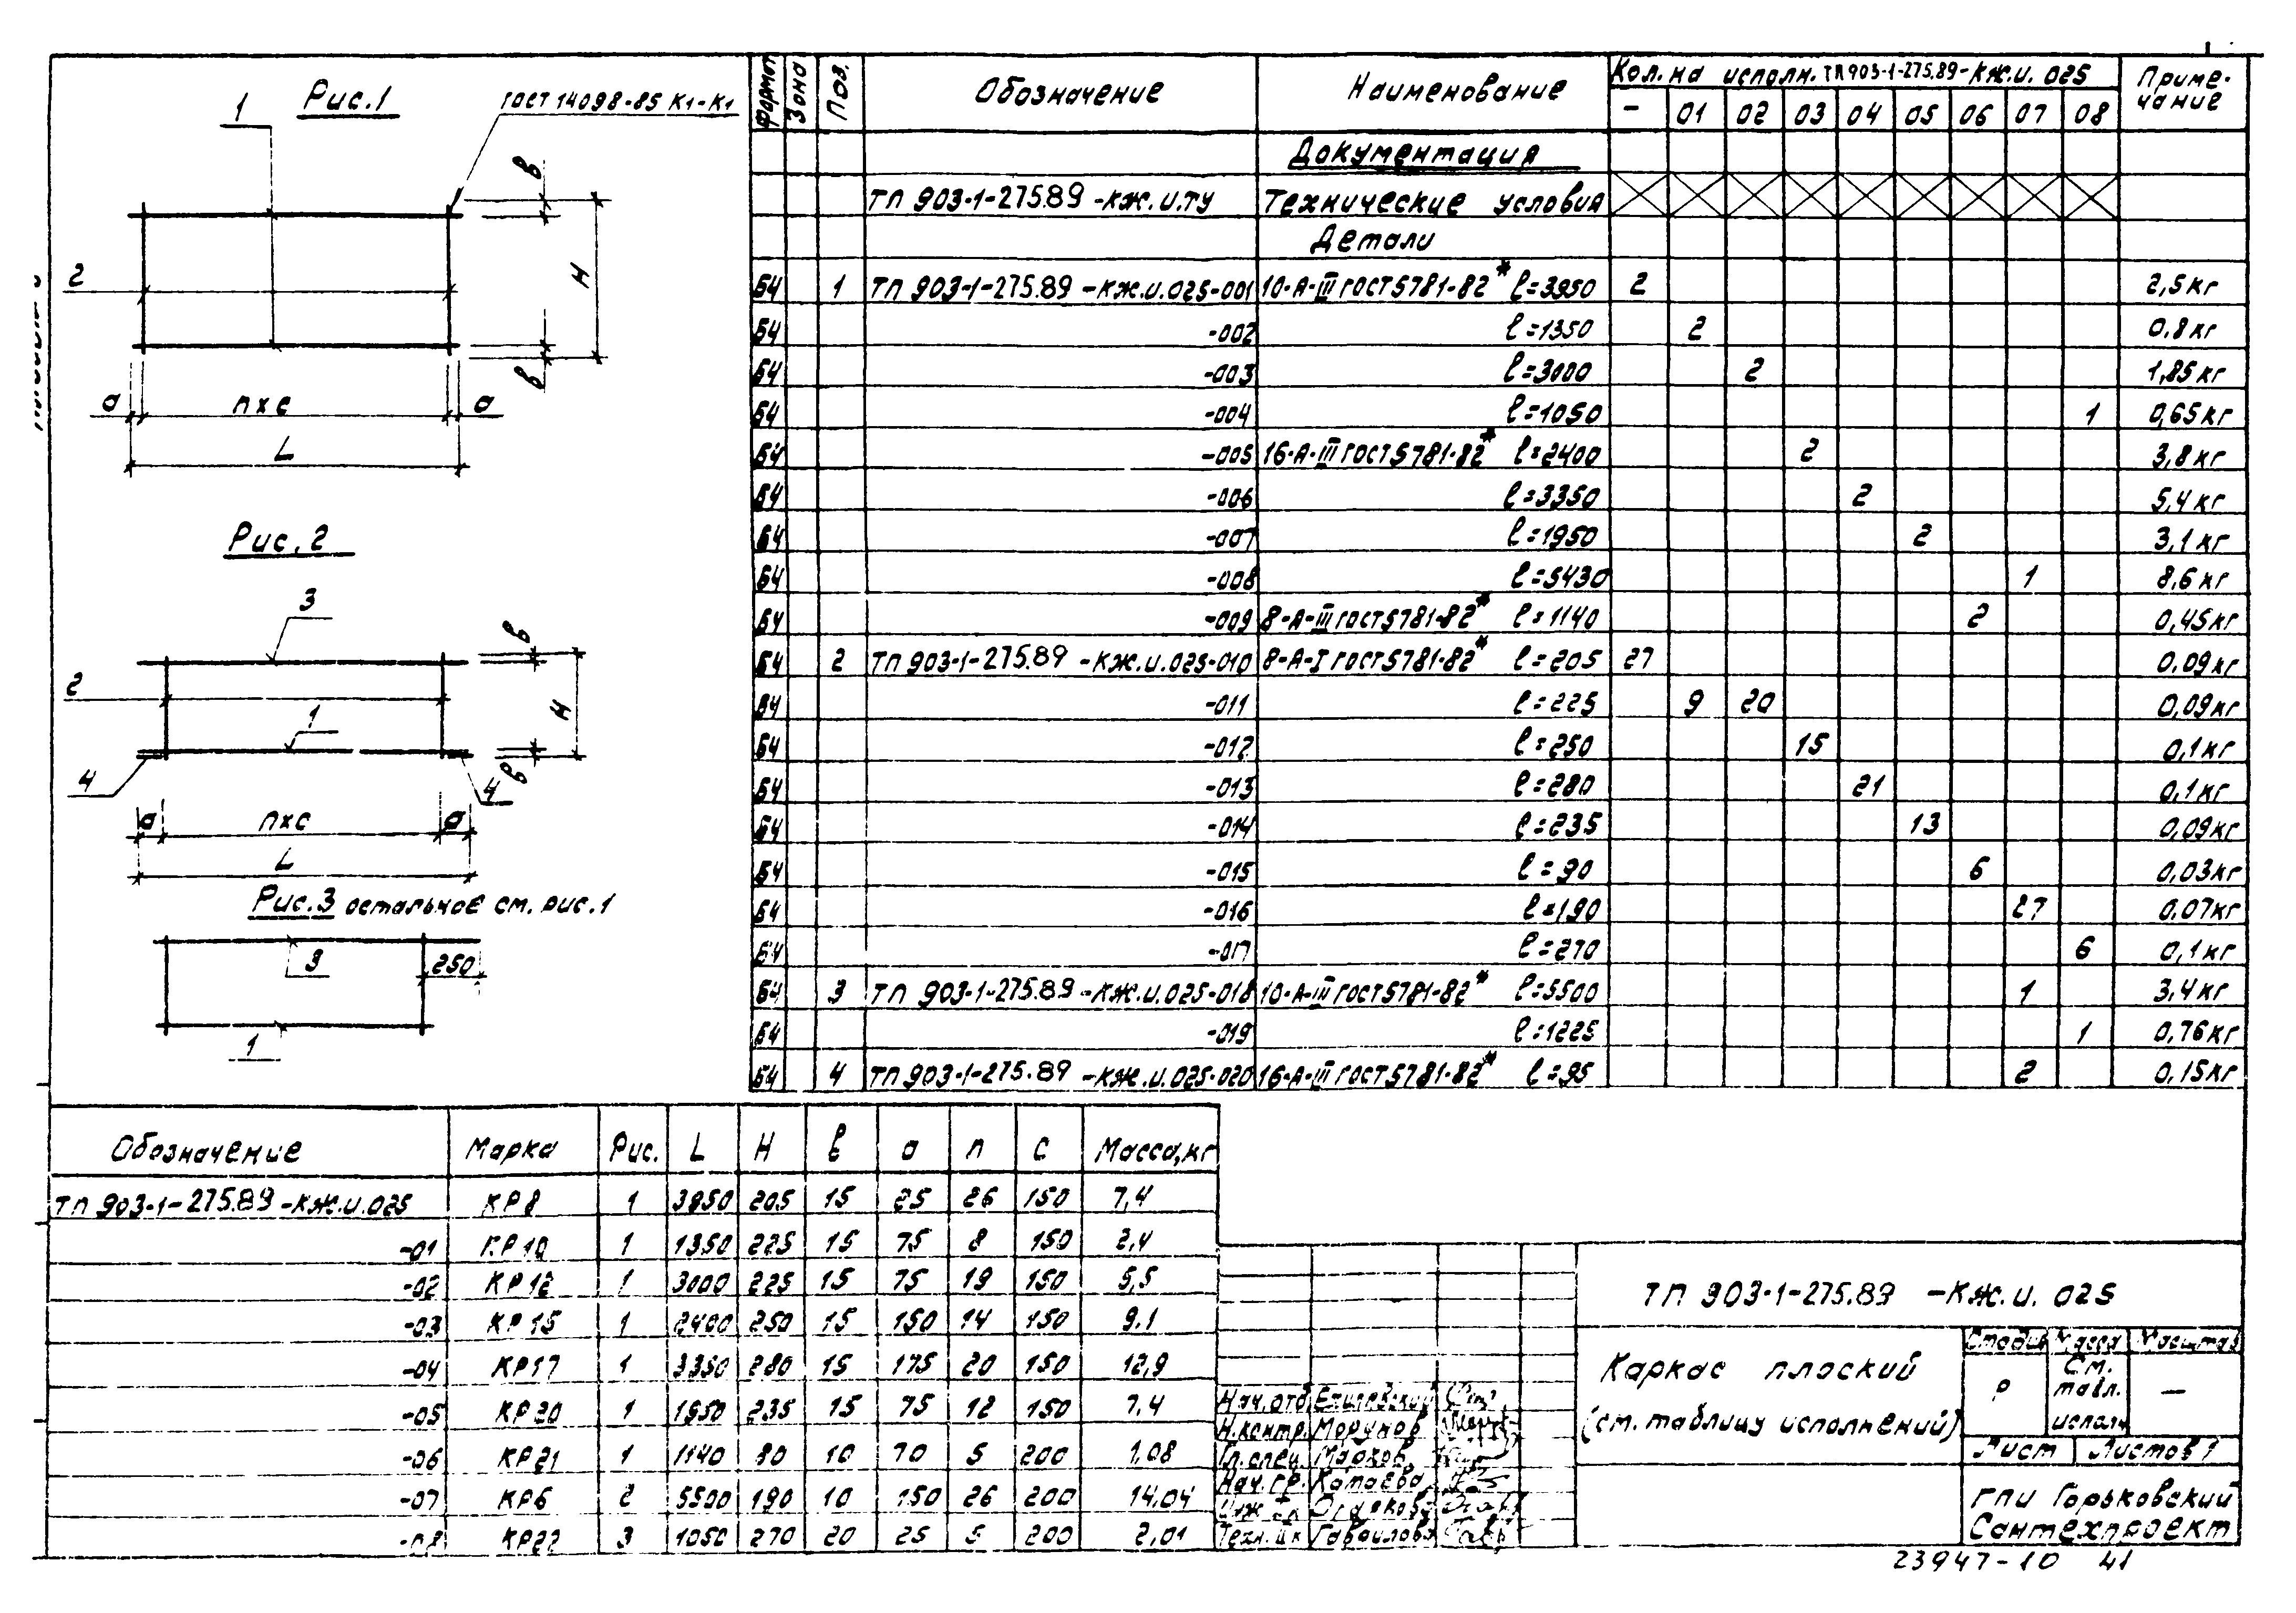 Рис.1
ГОСТ 14098-85 К1-К1
1
2
в
H
в
а
nxc
а
L
Рис. 2
3
2
1
4
4
в
H
в
а
nxc
а
L
Рис.3 остальное см. рис.1
3
250
1
Формат Зона Поз. Обозначение Наименование Кол. на исполн. ТП 903-1-275.89-КЖ.И. 025 Примечание
- 01 02 03 04 05 06 07 08
Документация
ТП 903-1-275.89 -КЖ.И.ТУ Технические условия
Детали
Б4 1 ТП 903-1-275.89 -КЖ.И.025-001 10-А-III ГОСТ 5781-82* ℓ=3950 2 2,5кг
Б4 -002 ℓ=1350 2 0,8кг
Б4 -003 ℓ=3000 2 1,85кг
Б4 -004 ℓ=1050 1 0,65кг
Б4 -005 16-А-III ГОСТ 5781-82* ℓ=2400 2 3,8кг
Б4 -006 ℓ=3350 2 5,4кг
Б4 -007 ℓ=1950 2 3,1кг
Б4 -008 ℓ=5430 1 8,6кг
Б4 -009 8-А-III ГОСТ 5781-82* ℓ=1140 2 0,45кг
Б4 2 ТП 903-1-275.89 -КЖ.И.025-010 8-А-I ГОСТ 5781-82* ℓ=205 27 0,09кг
Б4 -011 ℓ=225 9 20 0,09кг
Б4 -012 ℓ=250 15 0,1кг
Б4 -013 ℓ=280 21 0,1кг
Б4 -014 ℓ=235 13 0,09кг
Б4 -015 ℓ=90 6 0,03кг
Б4 -016 ℓ=190 27 0,07кг
Б4 -017 ℓ=270 6 0,1кг
Б4 3 ТП 903-1-275.89 -КЖ.И.025-018 10-А-III ГОСТ 5781-82* ℓ=5500 1 3,4кг
Б4 -019 ℓ=1225 1 0,76кг
Б4 4 ТП 903-1-275.89 -КЖ.И.025-020 16-А-III ГОСТ 5781-82* ℓ=95 2 0,15кг
Обозначение Марка Рис. L H в а n c Масса,кг
ТП 903-1-275.89 -КЖ.И.025 КР8 1 3950 205 15 25 26 150 7,4
-01 КР10 1 1350 225 15 75 8 150 2,4
-02 КР12 1 3000 225 15 75 19 150 5,5
-03 КР15 1 2400 250 15 150 14 150 9.1
-04 КР17 1 3350 280 15 175 20 150 12,9
-05 КР20 1 1950 235 15 75 12 150 7.4
-06 КР21 1 1140 90 10 70 5 200 1,08
-07 КР6 2 5500 190 10 150 26 200 14,04
-08 КР22 3 1050 270 20 25 5 200 2,01
ТП 903-1-275.89 -КЖ.И. 025
Каркас плоский
(см. таблицу исполнений)
Стадия Масса Масштаб
Р См. табл. исполн —
Лист Листов 1
ГПИ Горьковский
Сантехпроект
Нач.отд.
Н.контр.Морунов
Гл.спец. Марков
Нач.гр. Катаева
Инж.
Техн.
23947-10 41